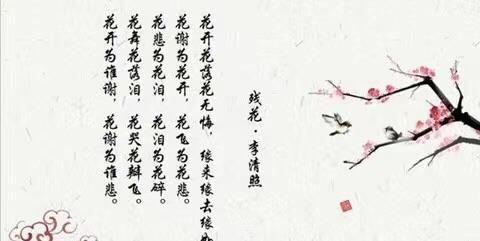 残花·李清照
花开花落花无悔，缘来缘去缘如
花谢为花开，花飞为花悲。
花悲为花泪，花泪为花碎。
花舞花落泪，花哭花瓣飞。
花开为谁谢，花谢为谁悲。